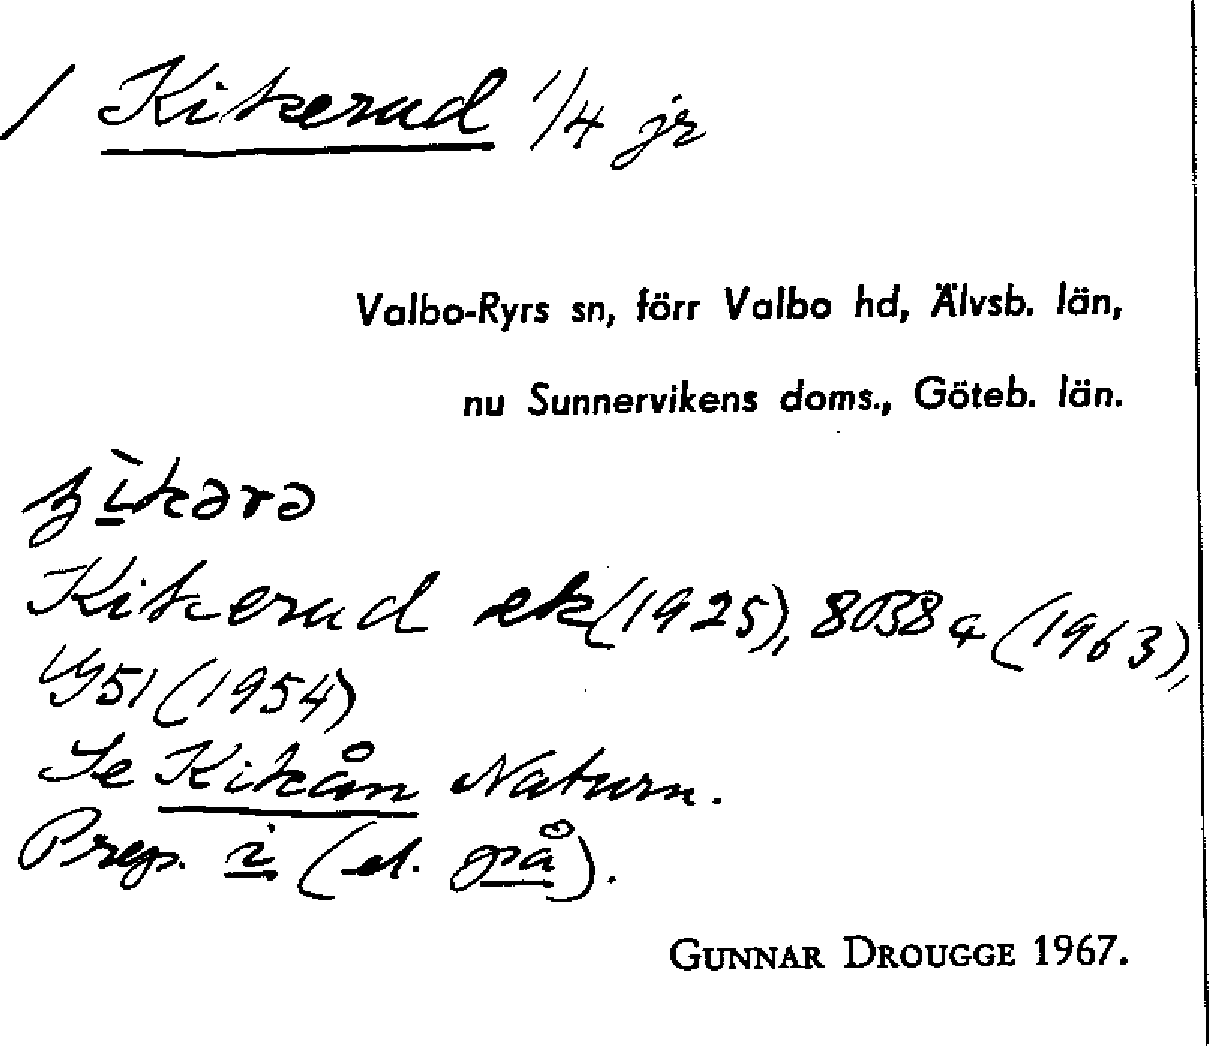 / Kikerud 1/4 jr
Valbo-Ryrs sn, förr Valbo hd, Älvsb. län,
nu Sunnervikens doms., Göteb. län.
Kikerud ek (1925), 8B8a (1963),
(1954)
Se Kikån Naturn.
Prep. i (el. på).
GUNNAR DROUGGE 1967.